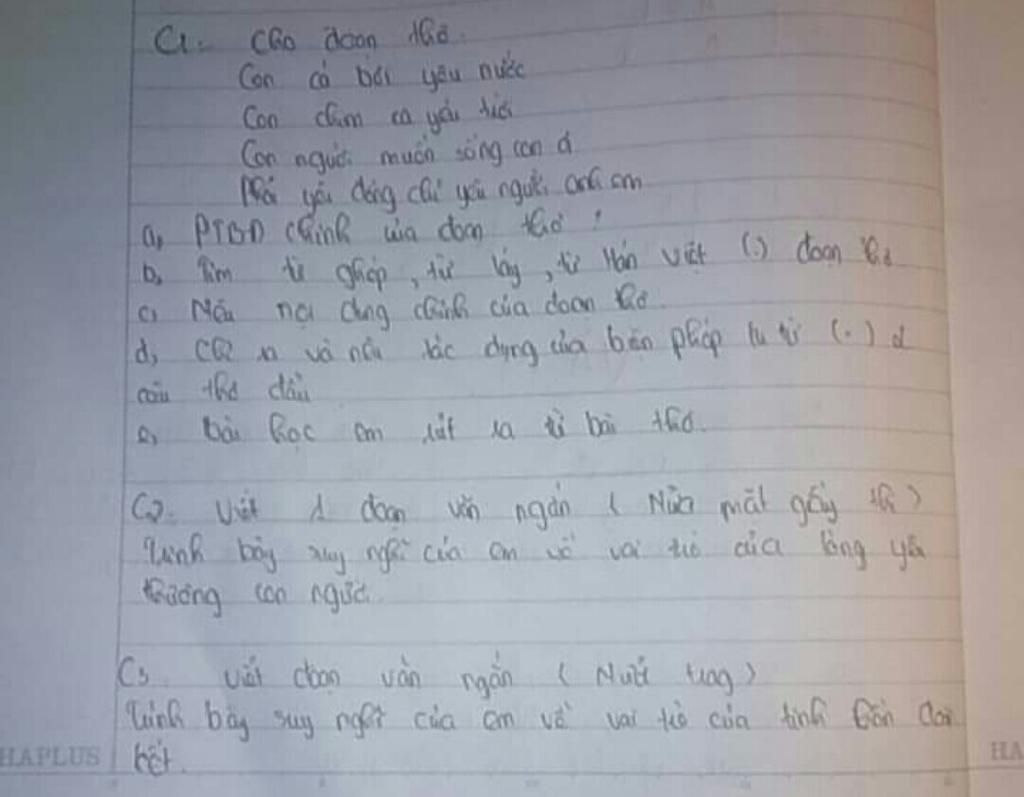 C1. Cho đoạn thơ:
Con cá bơi yêu nước
Con chim ca yêu trời
Con người muốn sống con ơi
Phải yêu đồng chí yêu người anh em
a, PTBĐ chính của đoạn thơ ?
b, Tìm từ ghép, từ láy, từ Hán Việt (.) đoạn thơ
c, Nêu nội dung chính của đoạn thơ.
d, Chỉ ra và nêu tác dụng của biện pháp tu từ (.) 2
câu thơ đầu
e, bài học em rút ra từ bài thơ.
C2. Viết 1 đoạn văn ngắn ( Nửa mặt giấy thi )
Trình bày suy nghĩ của em về vai trò của lòng yêu
thương con người.
C3. Viết đoạn văn ngắn ( Nửa trang )
Trình bày suy nghĩ của em về vai trò của tinh thần đoàn
kết.
HAPLUS
HA